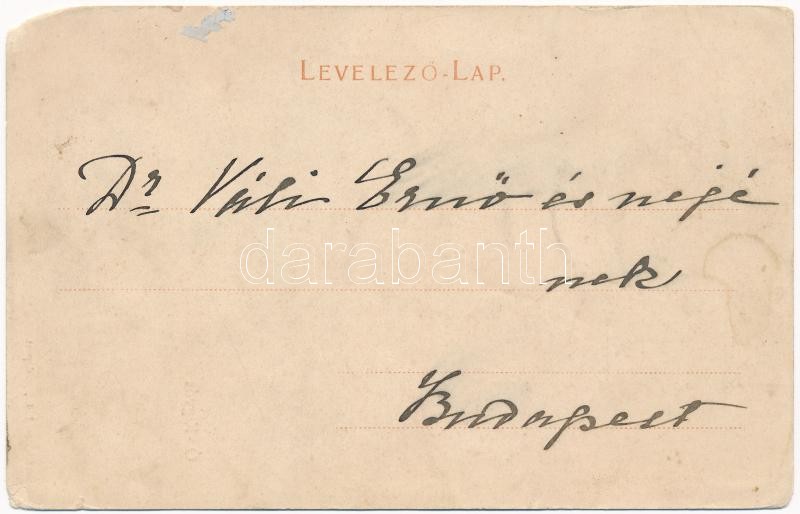 LEVELEZŐ-LAP.
Dr. Váli Ernő és nejé
darabanth
nek
Budapest